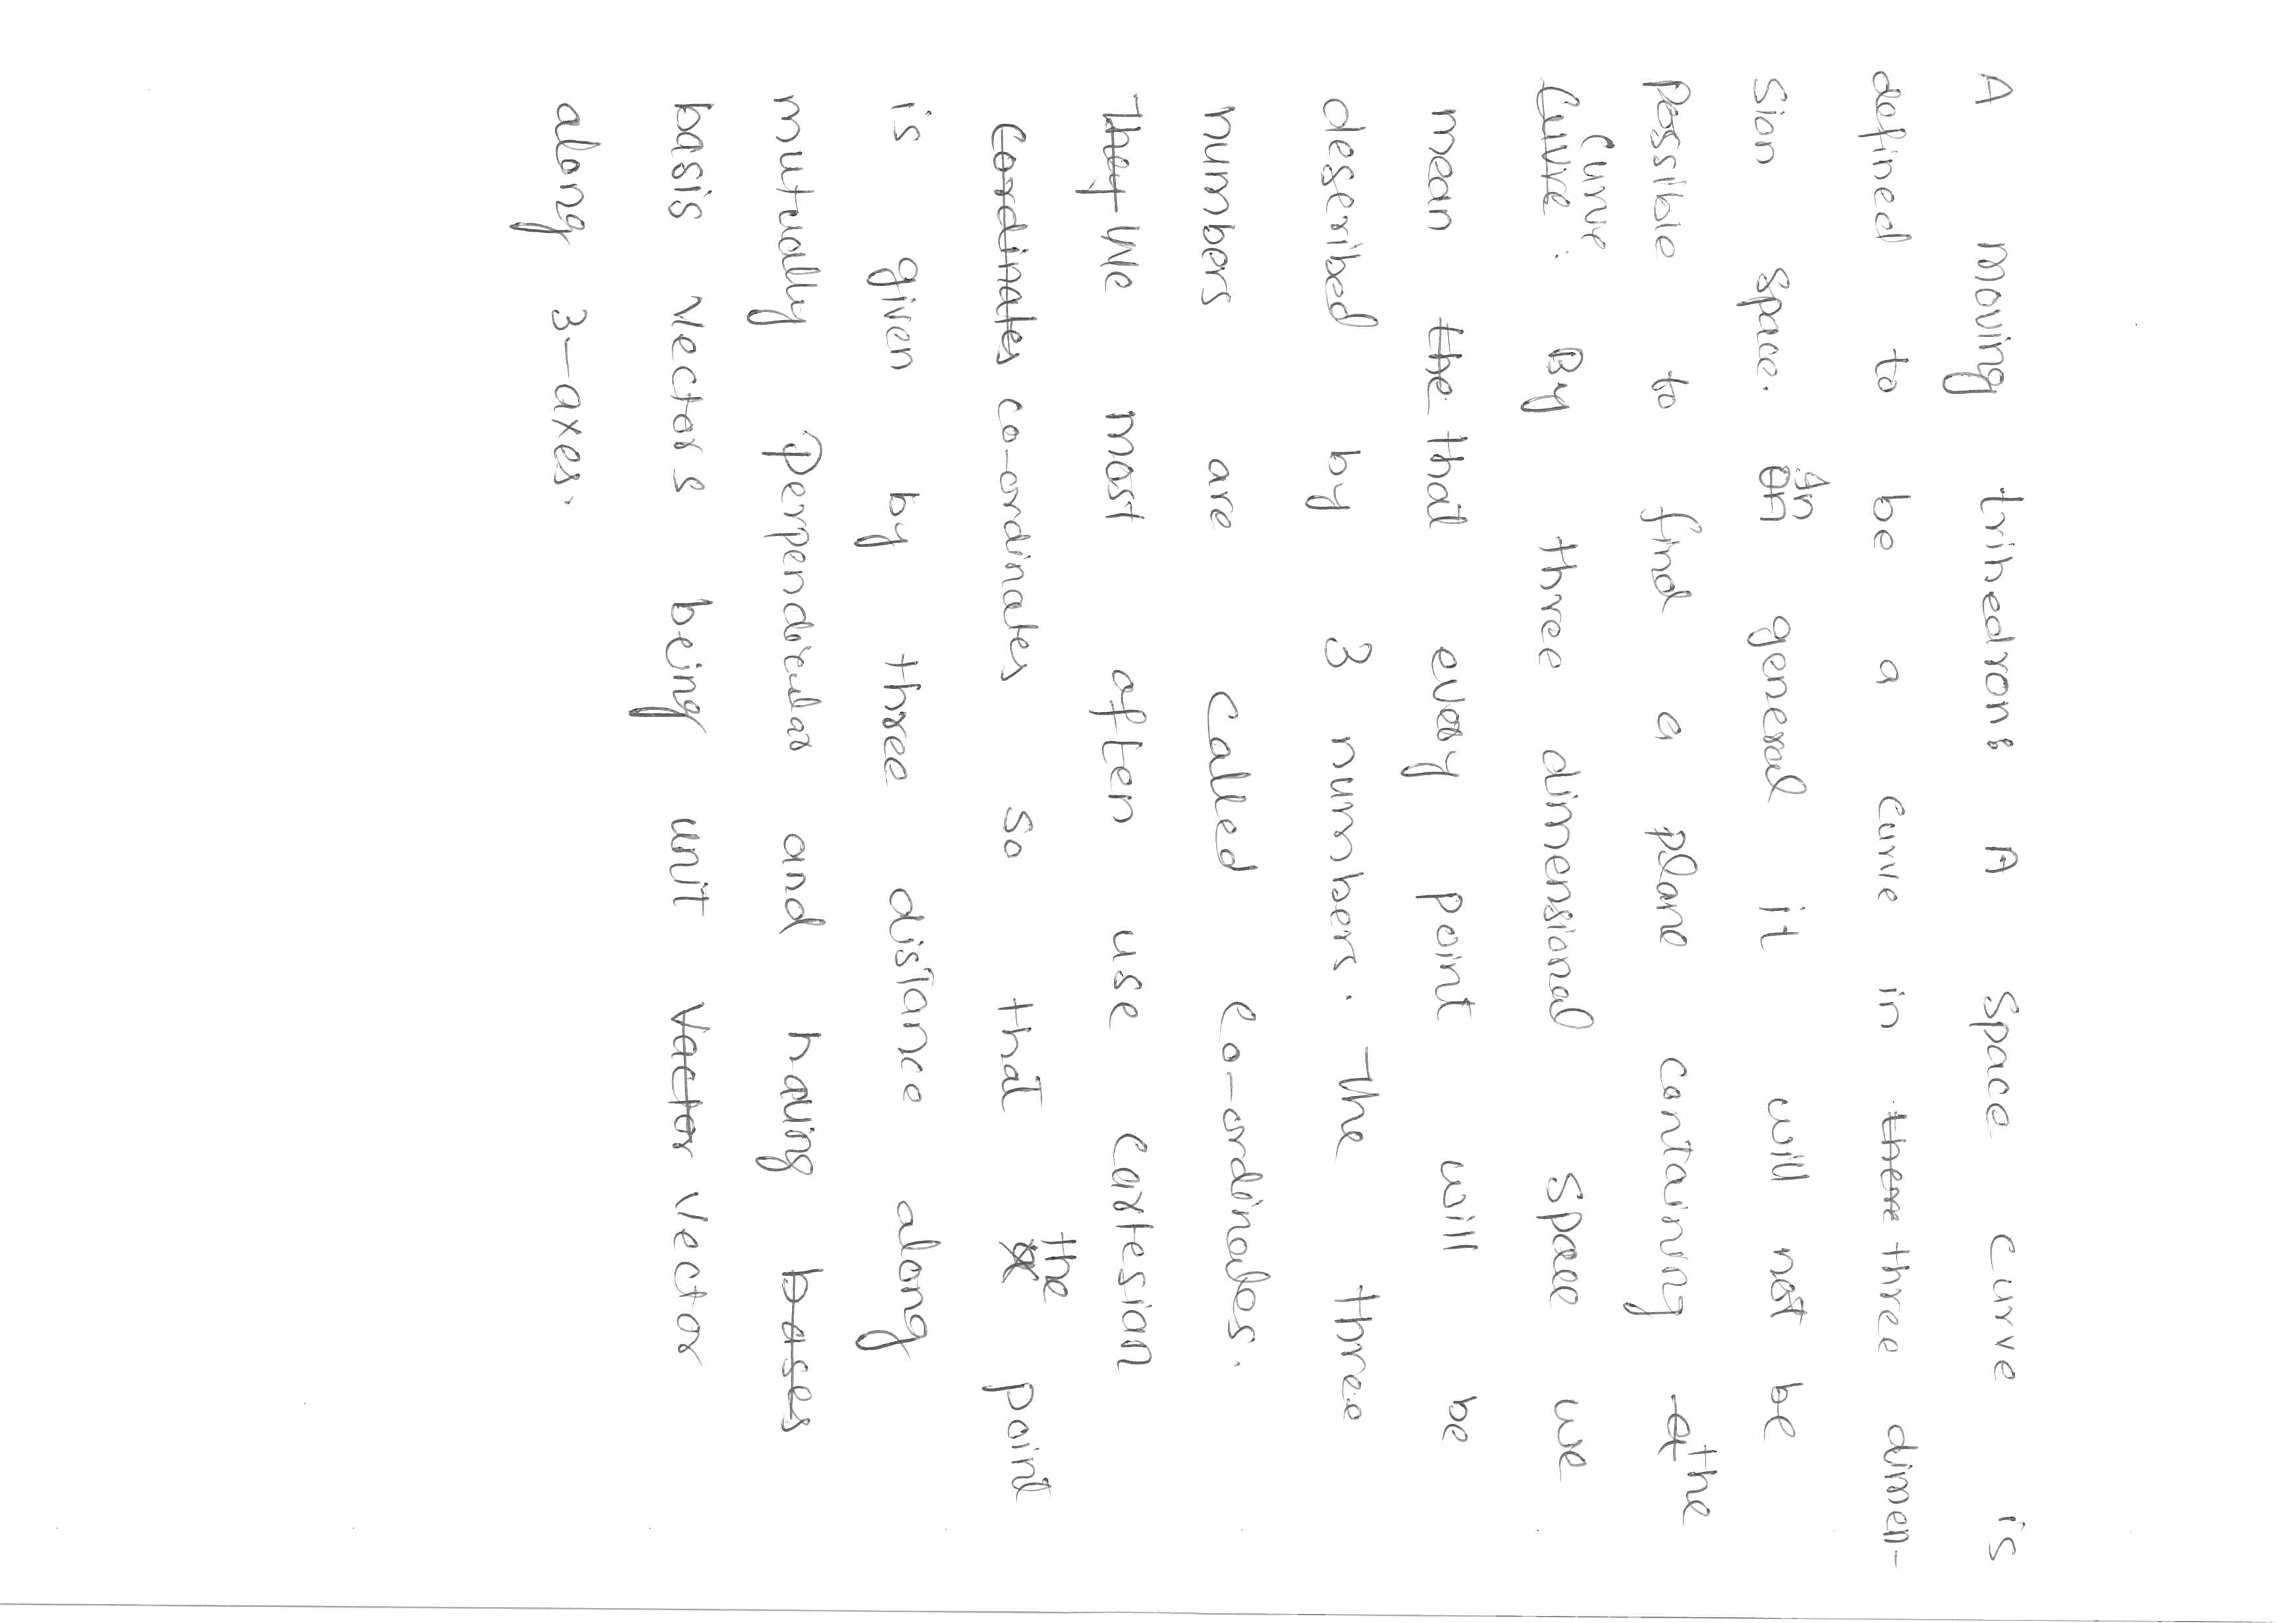 A moving trihedron: A space curve is
defined to be a curve in ~~there~~ three dimen-
sion space. ~~On~~ In general it will not be
possible to find a plane containing ~~a~~ the
~~Cuvre~~ curve. By three dimensional space we
mean ~~the~~ that every point will be
described by 3 numbers. The three
numbers are called co-ordinates.
~~They~~ We most often use cartesian
~~Cordinates~~ co-ordinates so that the point
is given by three distance along
mutually perpendicular and having ~~bases~~
basis vectors being unit ~~Vactor~~ vector
along 3-axes.